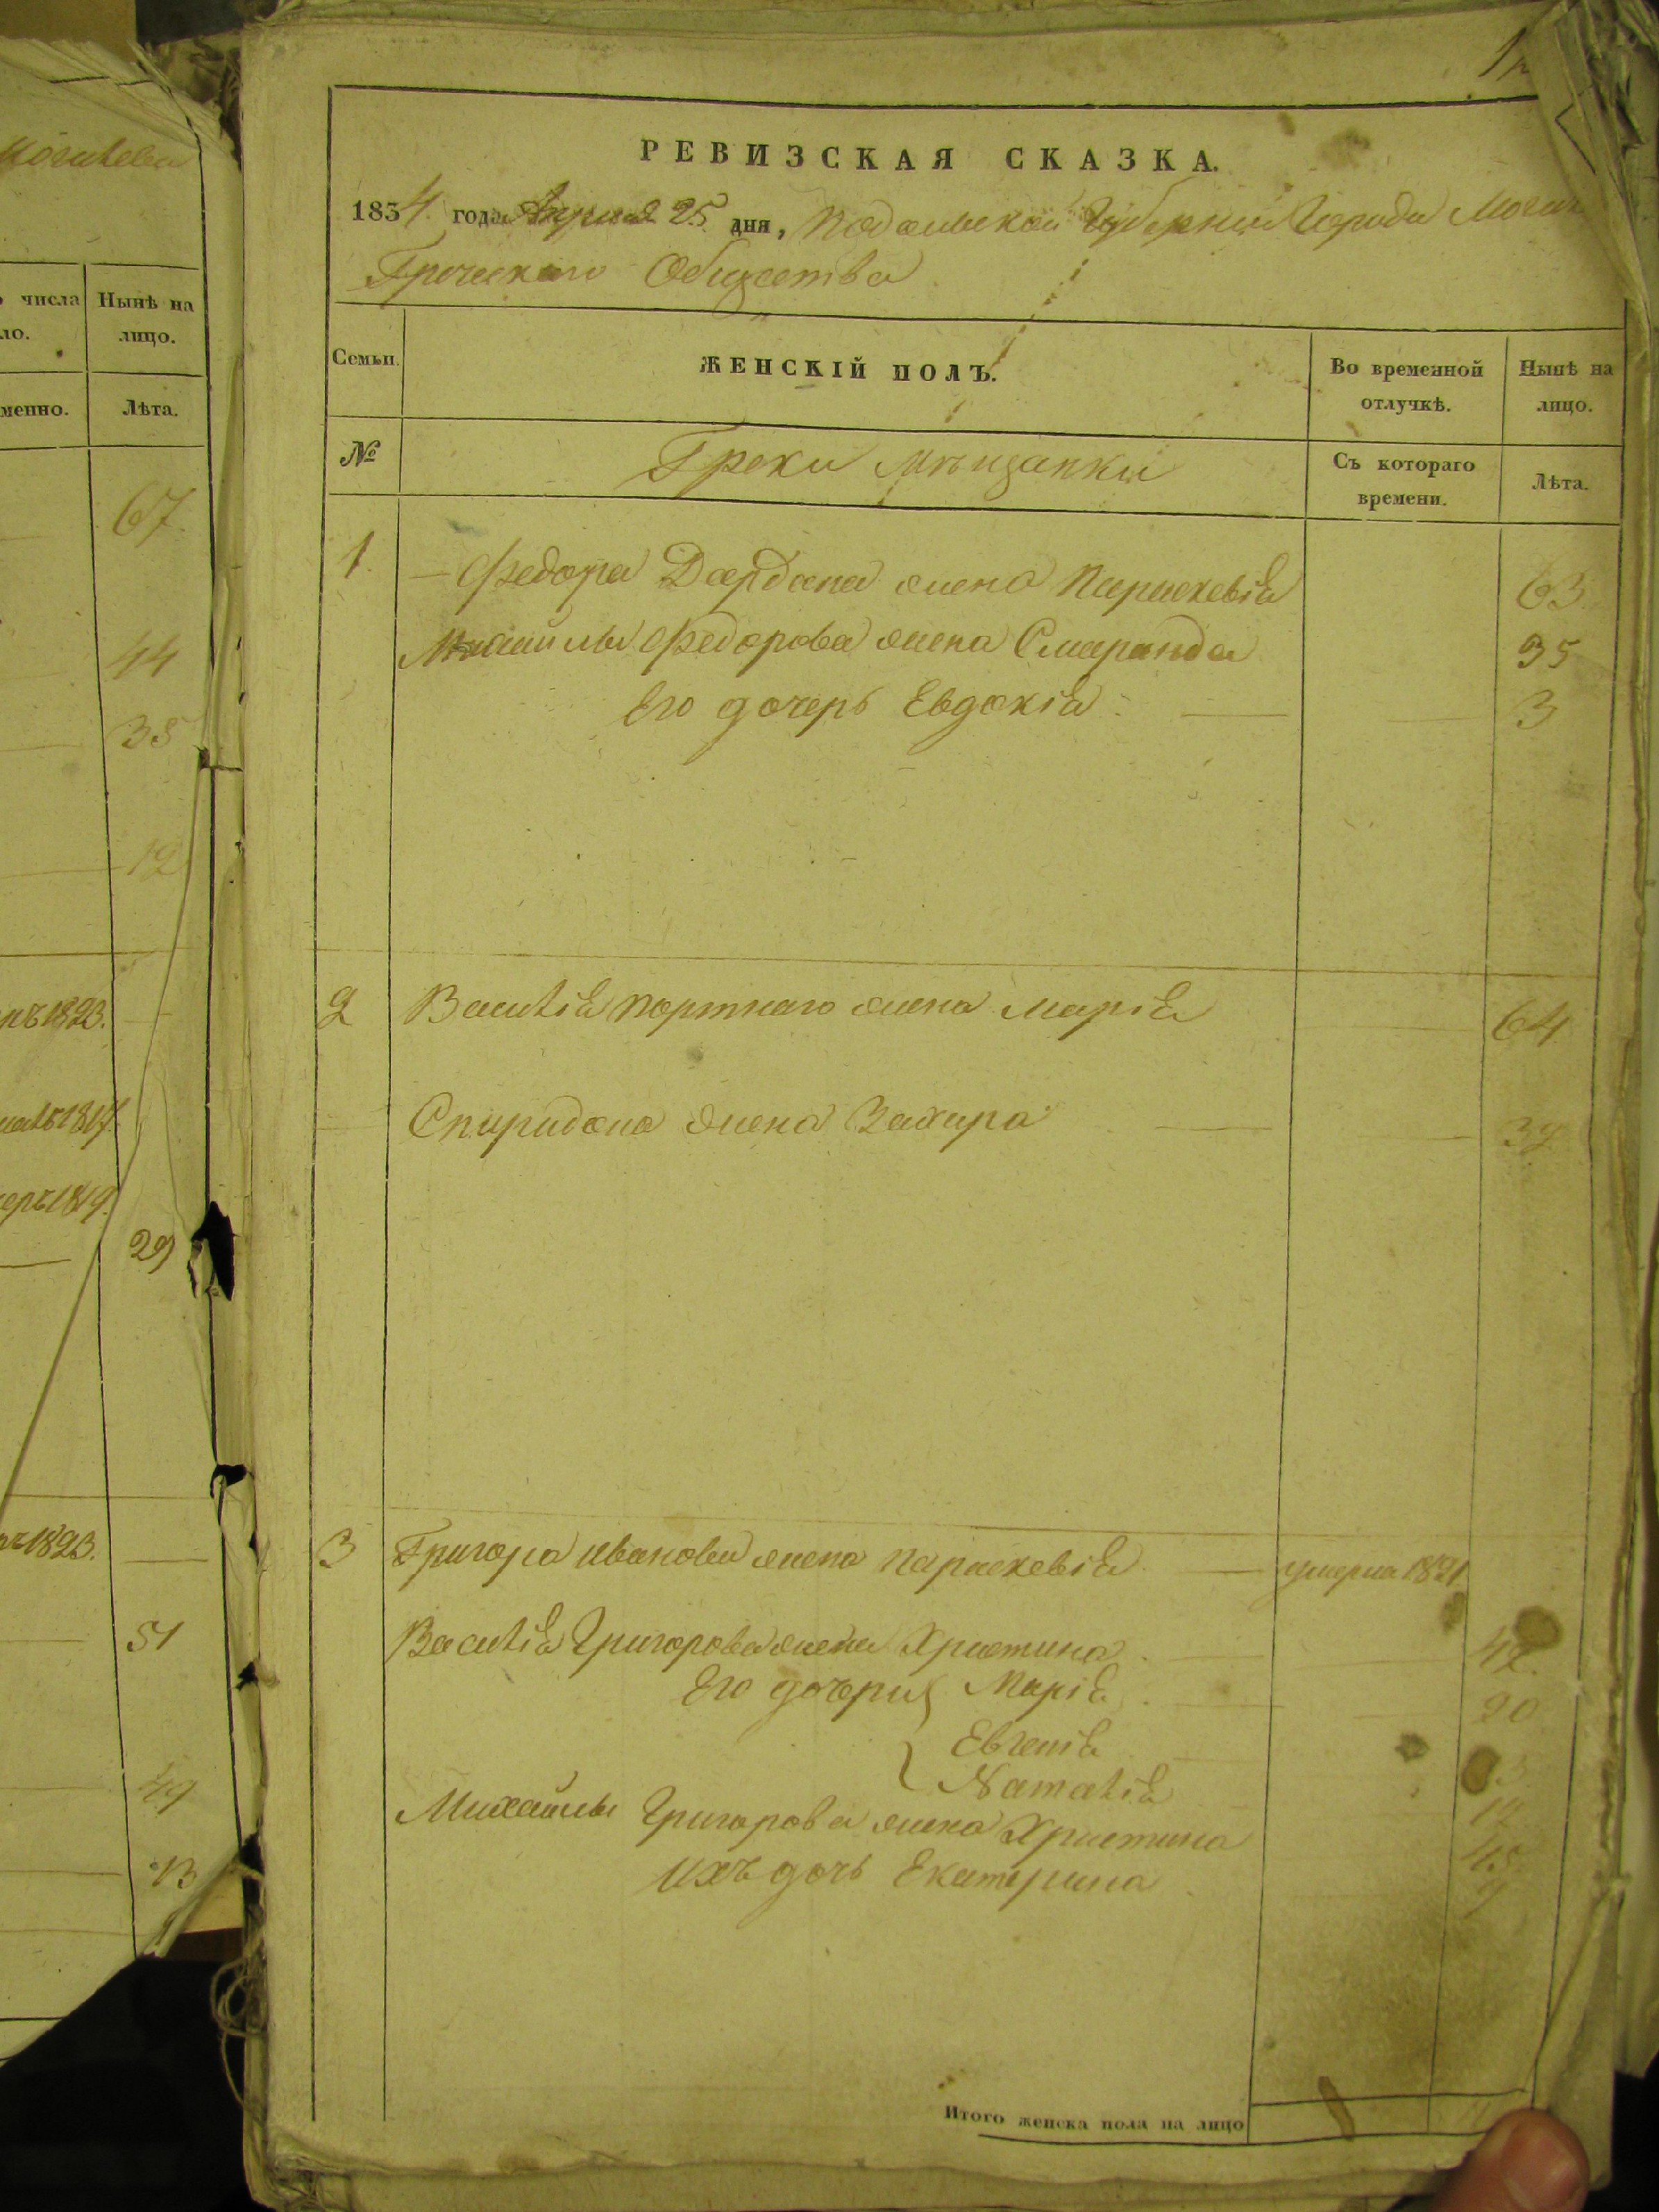 могилева
числа
ло.
Нынѣ на
лицо.
менно.
Лѣта.
67.
44
38
12
1823.
1817.
1819.
29
1823.
51
49
13
РЕВИЗСКАЯ СКАЗКА.
1834 года Апрѣля 25 дня, Подольской Губерніи Города Могил
Греческаго Общества
Семьи.
ЖЕНСКІЙ ПОЛЪ.
Во временной
отлучкѣ.
Нынѣ на
лицо.
№
Греки мѣщанки
Съ котораго
времени.
Лѣта.
1. Федора Дардана жена Параскевія 63
Михайлы Федорова жена Смаранда 35
Его дочерь Евдокія 3
2 Василія Портнаго жена Марія 64
Спиридона жена Захира 39
3 Григора Иванова жена Параскевія умерла 1821.
Василія Григорова жена Христина 42.
Его дочери Марія 20
Евгенія
Наталія 12
Михайлы Григорова жена Христина 45
Ихъ дочь Екатерина
Итого женска пола на лицо